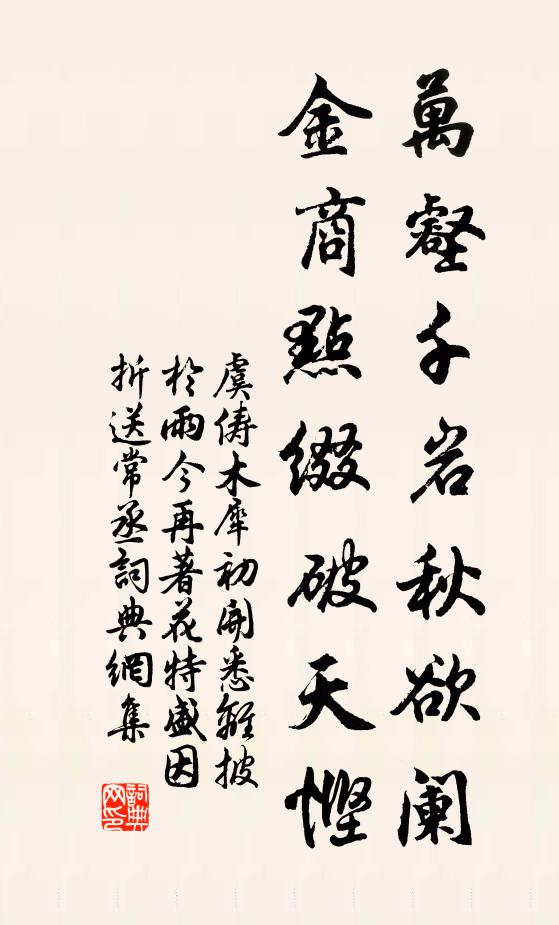 萬壑千岩秋欲阑
金商點缀破天慳
虞俦木犀初開悉離披
於雨今再著花特盛因
折送常丞詞典網集
詞典网印